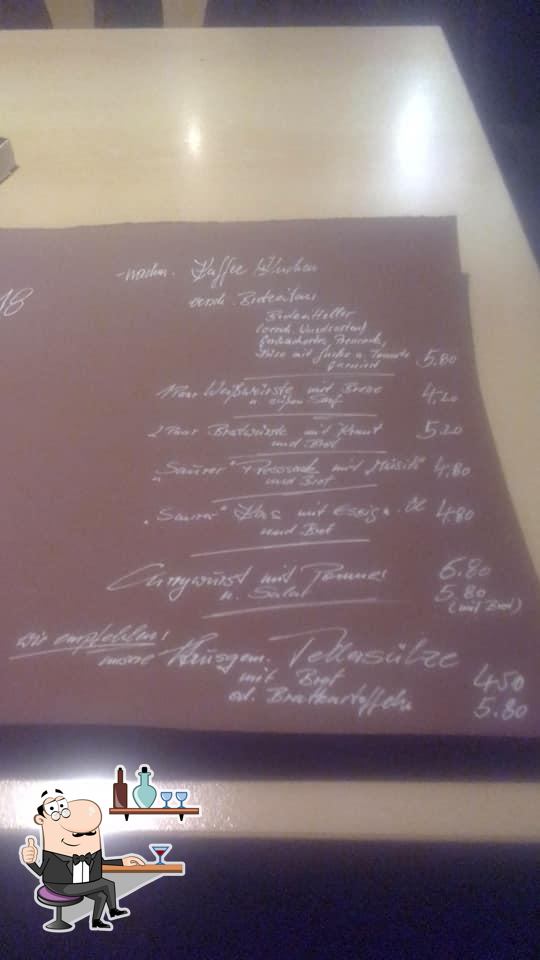 18
Kaffee Kuchen
versch. Brotzeiten
Brotzeitteller
(versch. Wurstsorten,
Geräuchertes, Presssack,
Käse mit Gurke u. Tomate
garniert 5.80
1 Paar Weißwürste mit Breze 4.20
u. süßen Senf
2 Paar Bratwürste mit Kraut 5.20
und Brot
"Saurer" Pressack mit Musik 4.80
und Brot
"Saurer" Käs mit Essig u. Öl 4.80
und Brot
Currywurst mit Pommes 6.80
u. Salat 5.80
(mit Brot)
wir empfehlen!
unsere Hausgem. Tellersülze
mit Brot 4.50
od. Bratkartoffeln 5.80